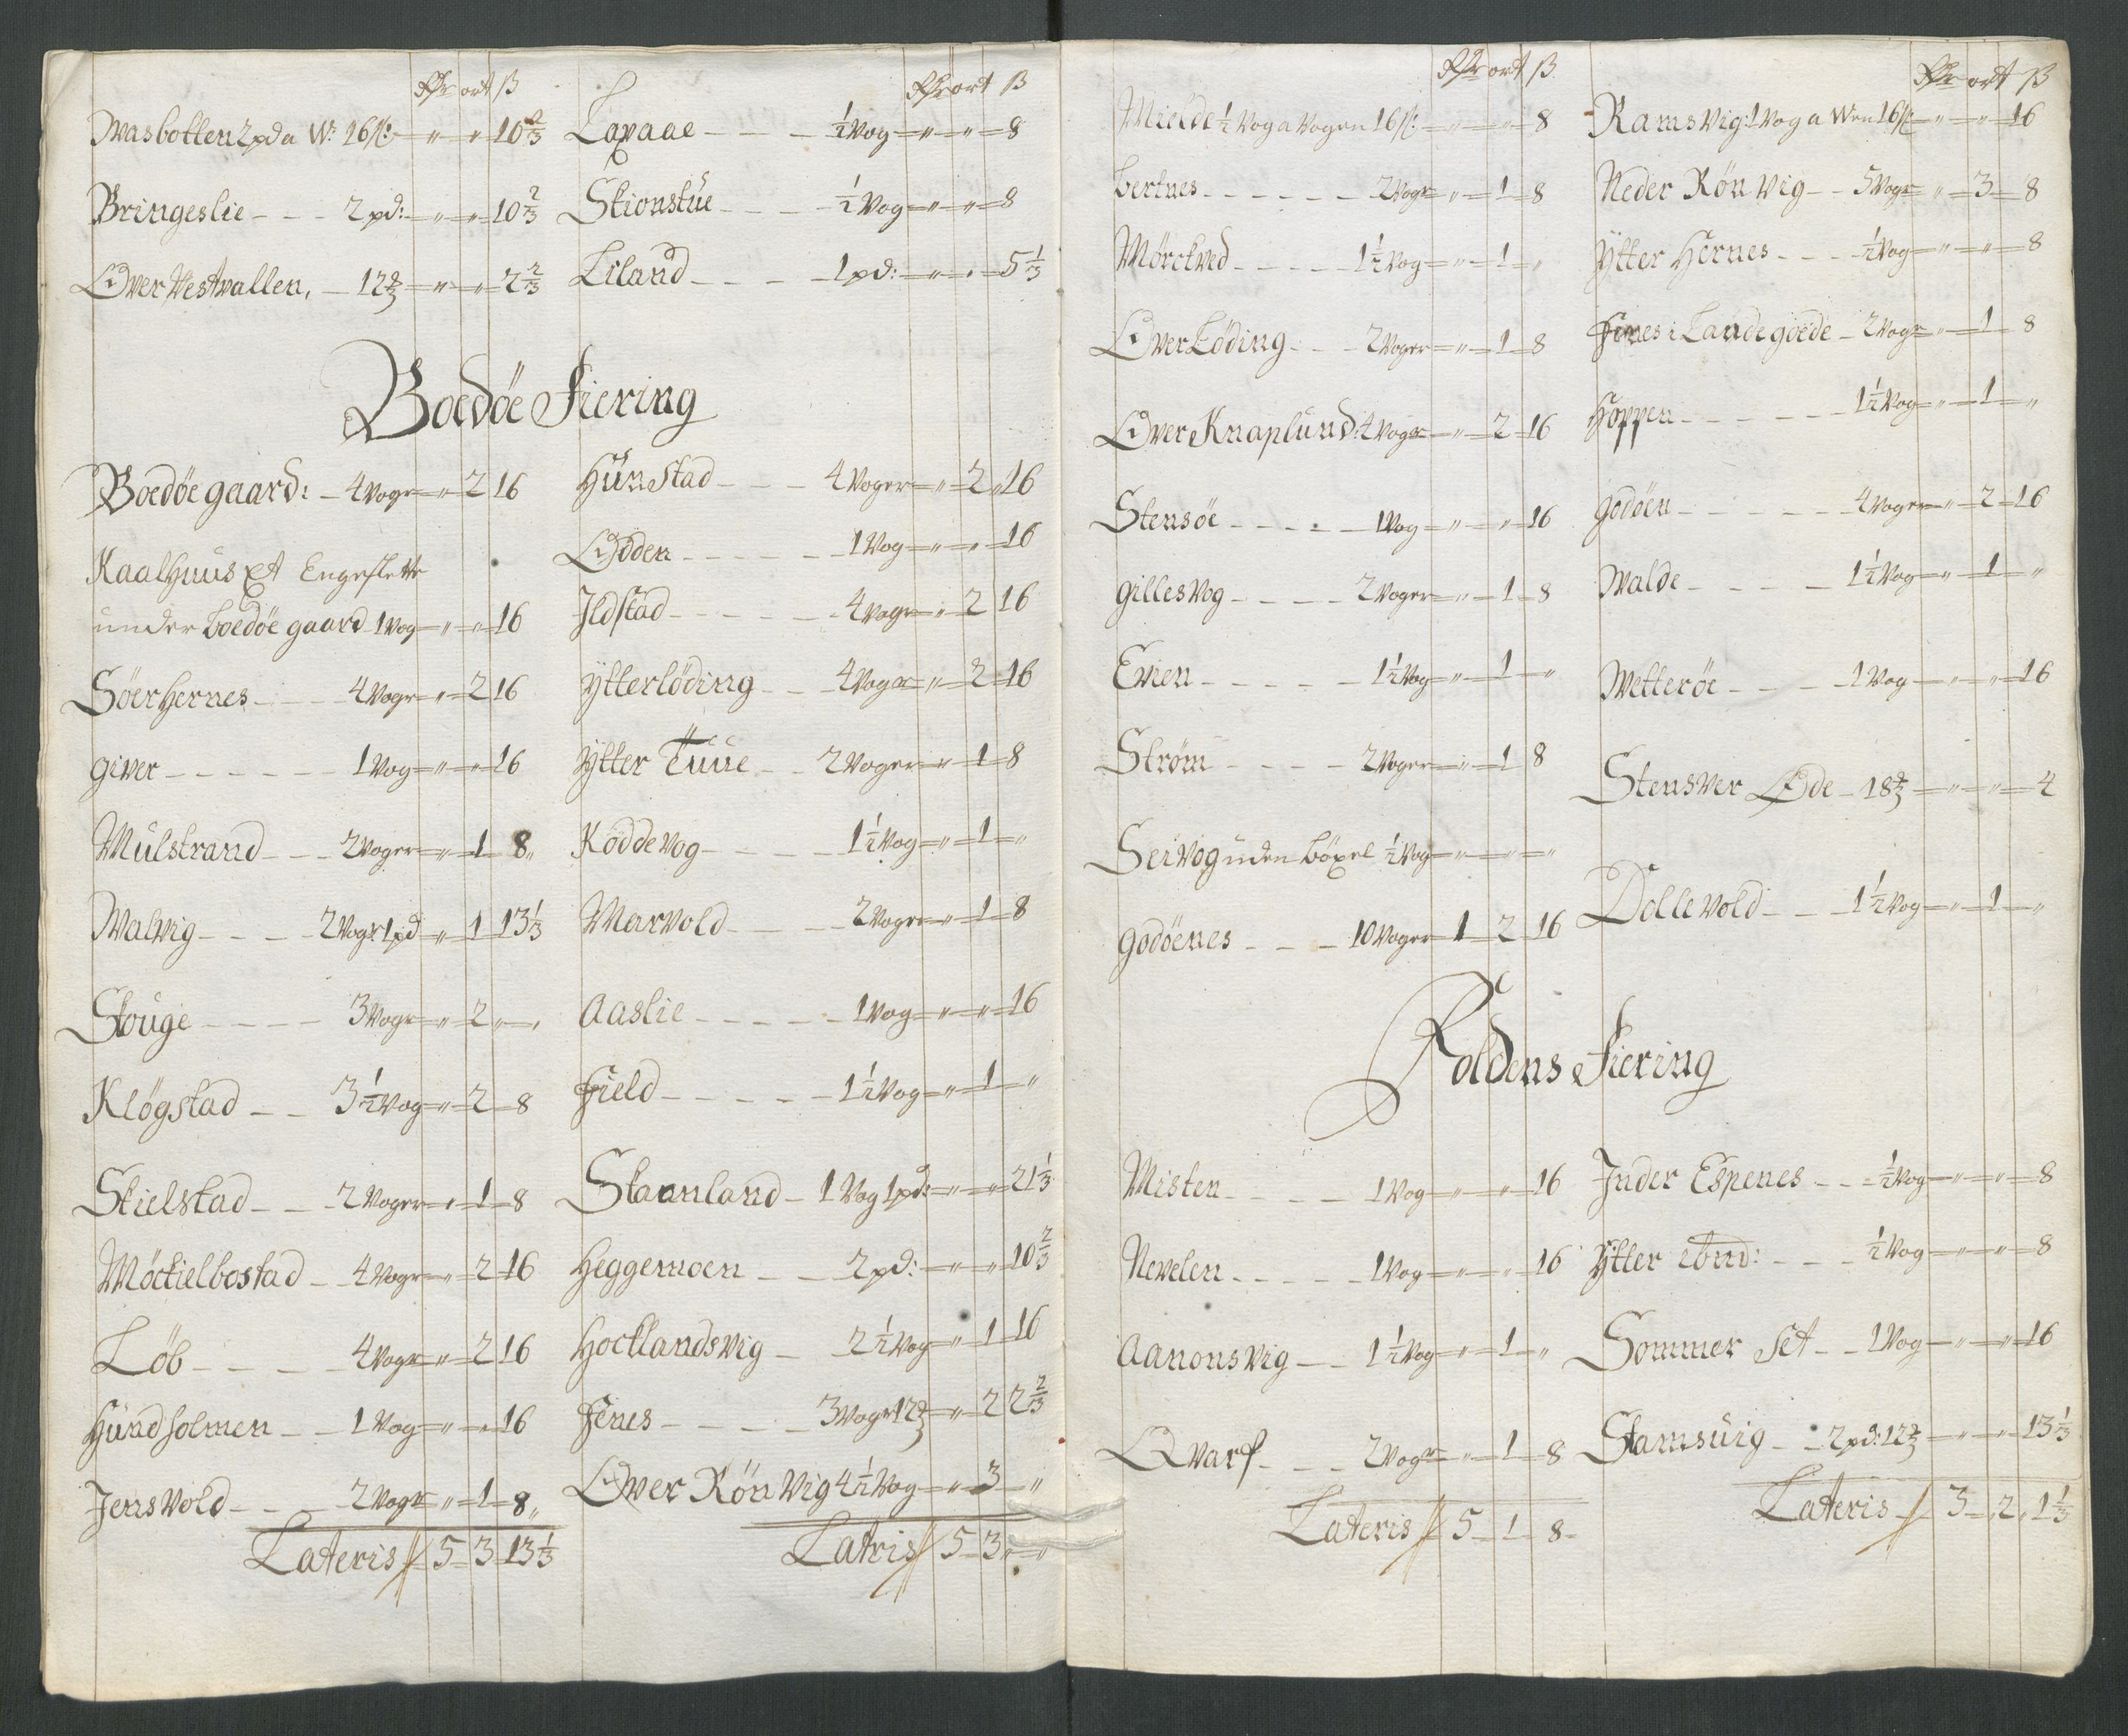 Rdr ort ß
Wasbotten 2 pd a W: 16 ß: " " 10 2/3
Bringeslie 2 pd: " " 10 2/3
Over Westvallen, 12 ℔ " " 2 2/3
Rdr ort ß
Laxaae 1/2 Vog " " 8
Skionstue 1/2 Vog " " 8
Liland 1 pd: " " 5 1/3
Boedöe Fiering
Boedöe gaard: 4 Vogr " 2 16
Kaalhuus et Engeslette
under boedöe gaard 1 Vog " " 16
Söer Hernes 4 Vogr " 2 16
giver 1 Vog " " 16
Mulstrand 2 Voger " 1 8
Walvig 2 Vogr 1 pd " 1 13 1/3
Skouge 3 Vogr " 2 "
Kløgstad 3 1/2 Vog " 2 8
Skielstad 2 Voger " 1 8
Möckielbostad 4 Vogr " 2 16
Löb 4 Vogr " 2 16
Hundholmen 1 Vog " " 16
Jensvold 2 Vogr " 1 8
Lateris // 5 3 13 1/3
Hunstad 4 Voger " 2 16
Odden 1 Vog " " 16
Ildstad 4 Vogr " 2 16
Ytterlöding 4 Vogr " 2 16
Ytter Tuue 2 Voger " 1 8
Koddevog 1 1/2 Vog " 1 "
Marvold 2 Vogr " 1 8
Aaslie 1 Vog " " 16
Field 1 1/2 Vog " 1 "
Staanland 1 Vog 1 pd: " " 21 1/3
Heggemoen 2 pd: " " 10 2/3
Hocklandsvig 2 1/2 Vog " 1 16
Fenes 3 Vogr 12 ℔ " 2 2 2/3
Over Rön Vig 4 1/2 Vog " 3 "
Latris // 5 3 "
Rdr ort ß
Mielde 1/2 Vog a Vogen 16 ß: " " 8
bertnes 2 Vogr " 1 8
Mörckved 1 1/2 Vog " 1 "
Over Löding 2 Voger " 1 8
Over Knaplund: 4 Vogr " 2 16
Stensöe 1 Vog " " 16
gillesvog 2 Voger " 1 8
Evien 1 1/2 Vog " 1 "
Ström 2 Voger " 1 8
Seivog uden böxel 1/2 Vog " " "
godöenes 10 Voger 1 2 16
Rdr ort ß
Ramsvig: 1 Vog a Wen 16 ß " " 16
Neder Rön Vig 5 Vogr " 3 8
Ytter Hernes 1/2 Vog " " 8
Fenes i Landegoede 2 Vogr " 1 8
Hoppen 1 1/2 Vog " 1 "
godöen 4 Voger " 2 16
Walde 1 1/2 Vog " 1 "
Wetteröe 1 Vog " " 16
Stensver Øde 18 ℔ " " 4
Dollevold 1 1/2 Vog " 1 "
Foldens Fiering
Misten 1 Vog " " 16
Nevelen 1 Vog " " 16
Aanonsvig 1 1/2 Vog " 1 "
Qvarf 2 Vogr " 1 8
Lateris // 5 1 8
Inder Espenes 1/2 Vog " " 8
Ytter ibnd: 1/2 Vog " " 8
Sommer Set 1 Vog " " 16
Stamsuig 2 pd: 12 ℔ " " 13 1/3
Lateris // 3 2 1 1/3